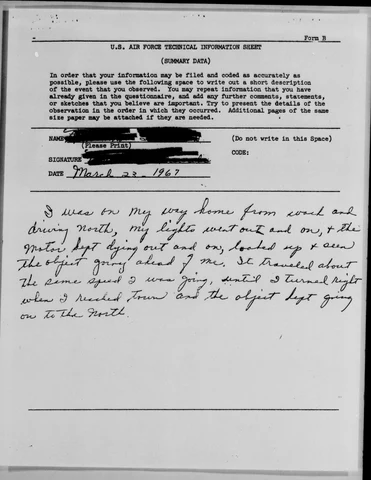 Form B
U.S. AIR FORCE TECHNICAL INFORMATION SHEET
(SUMMARY DATA)
In order that your information may be filed and coded as accurately as
possible, please use the following space to write out a short description
of the event that you observed. You may repeat information that you have
already given in the questionnaire, and add any further comments, statements,
or sketches that you believe are important. Try to present the details of the
observation in the order in which they occurred. Additional pages of the same
size paper may be attached if they are needed.
NAME
(Please Print)
SIGNATURE
DATE March 23 - 1967
(Do not write in this Space)
CODE:
I was on my way home from work and
driving North, my lights went out and on, & the
Motor kept dying out and on, looked up & seen
the object going ahead of me. It traveled about
the same speed I was going, until I turned right
when I reached town and the object kept going
on to the North.